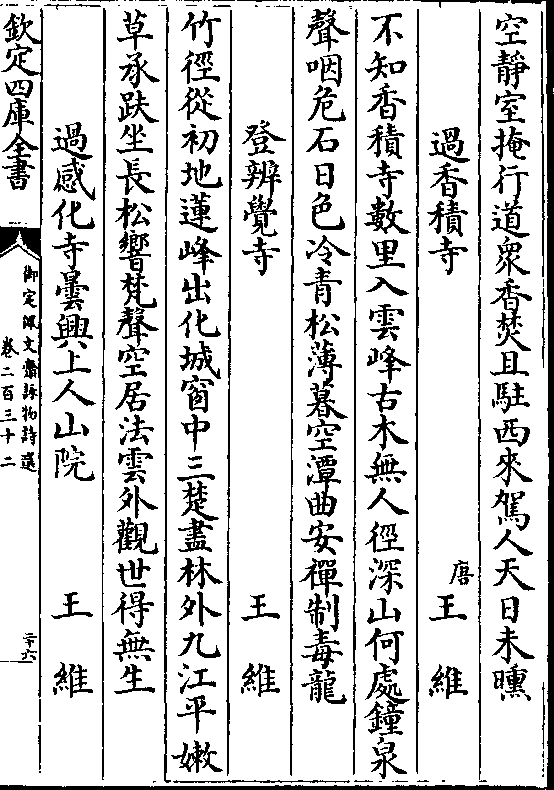 空靜室掩行道衆香焚且駐西來駕人天日未曛
過香積寺 唐 王維
不知香積寺數里入雲峰古木無人徑深山何處鐘泉
聲咽危石日色冷青松薄暮空潭曲安禪制毒龍
登辨覺寺 王維
竹徑從初地蓮峰出化城窗中三楚盡林外九江平嫩
草承趺坐長松響梵聲空居法雲外觀世得無生
過感化寺曇興上人山院 王維
欽定四庫全書
御定佩文齋詠物詩選
卷二百三十二
二十六